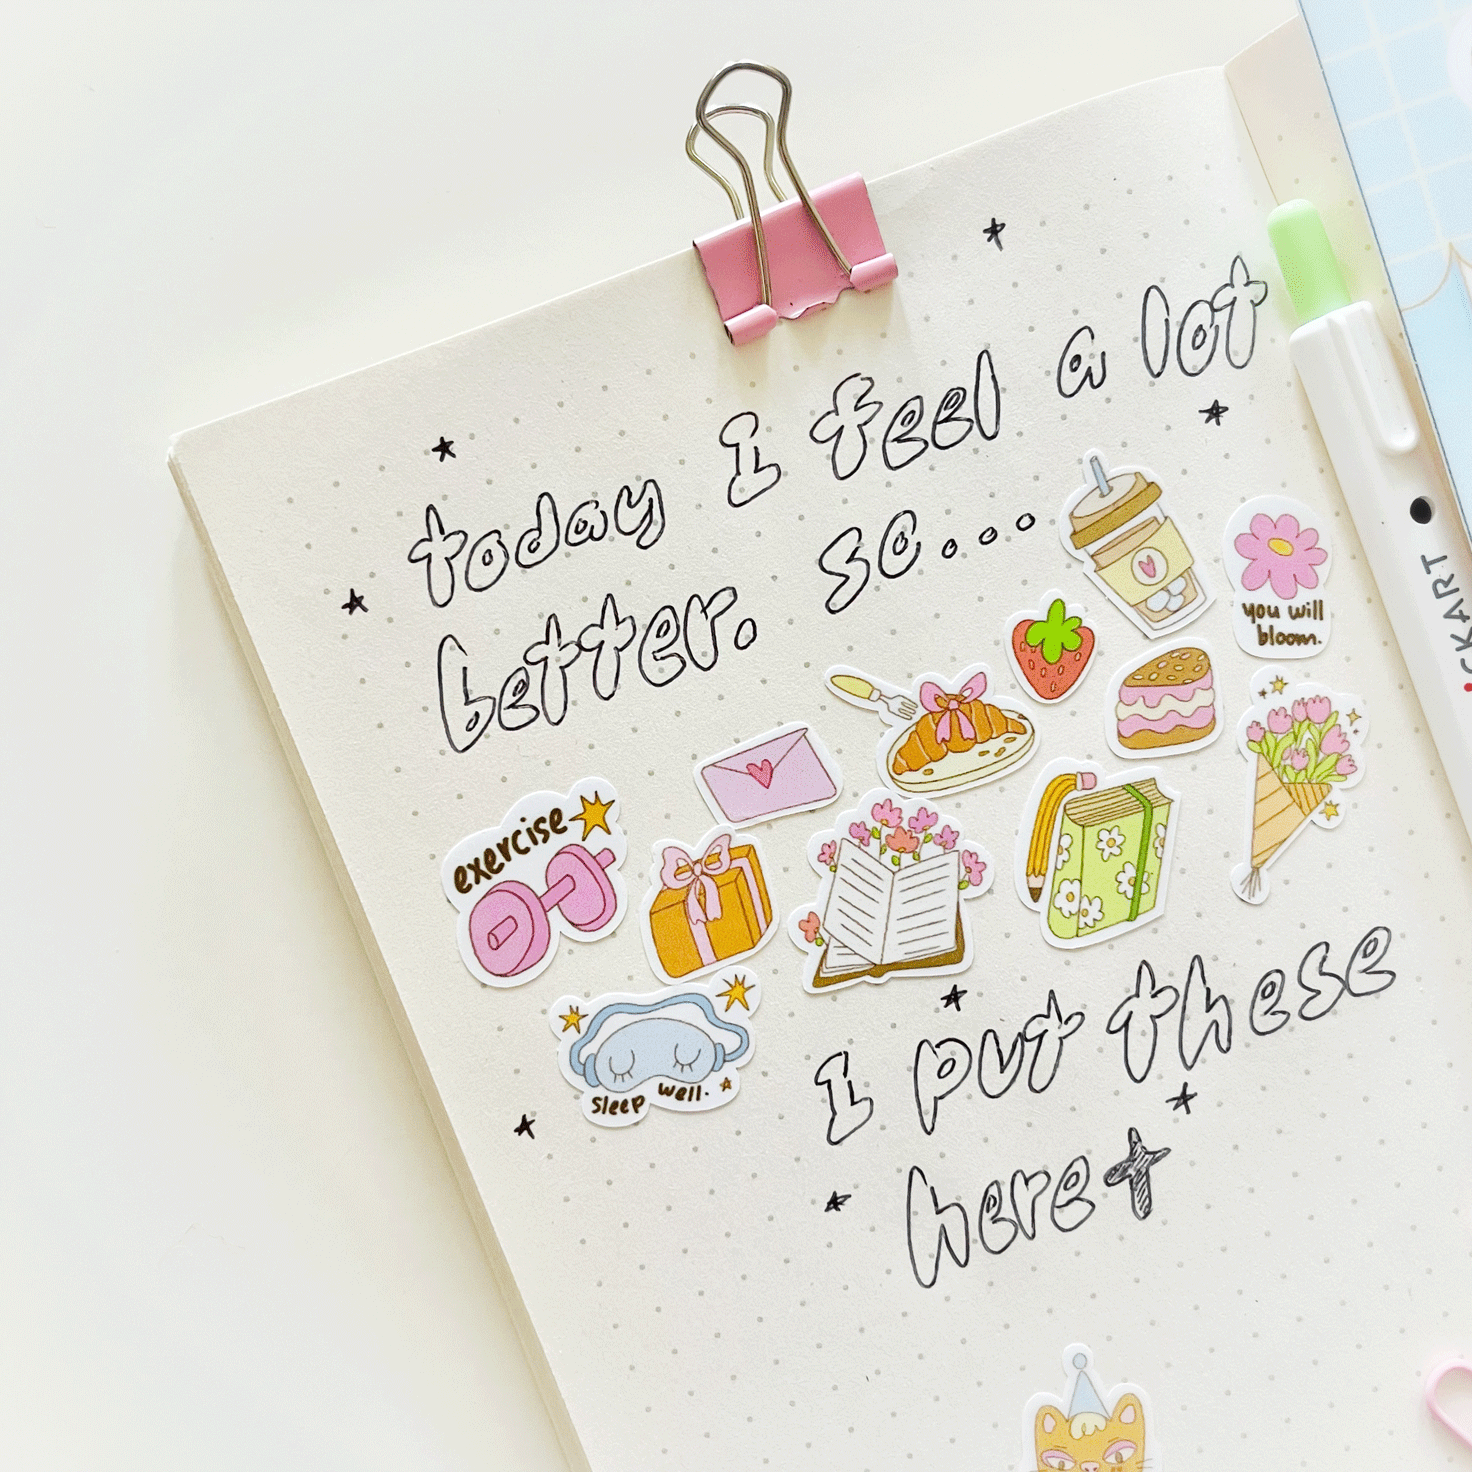 today I feel a lot
better. so...
you will
bloom.
exercise
sleep well.
I put these
here